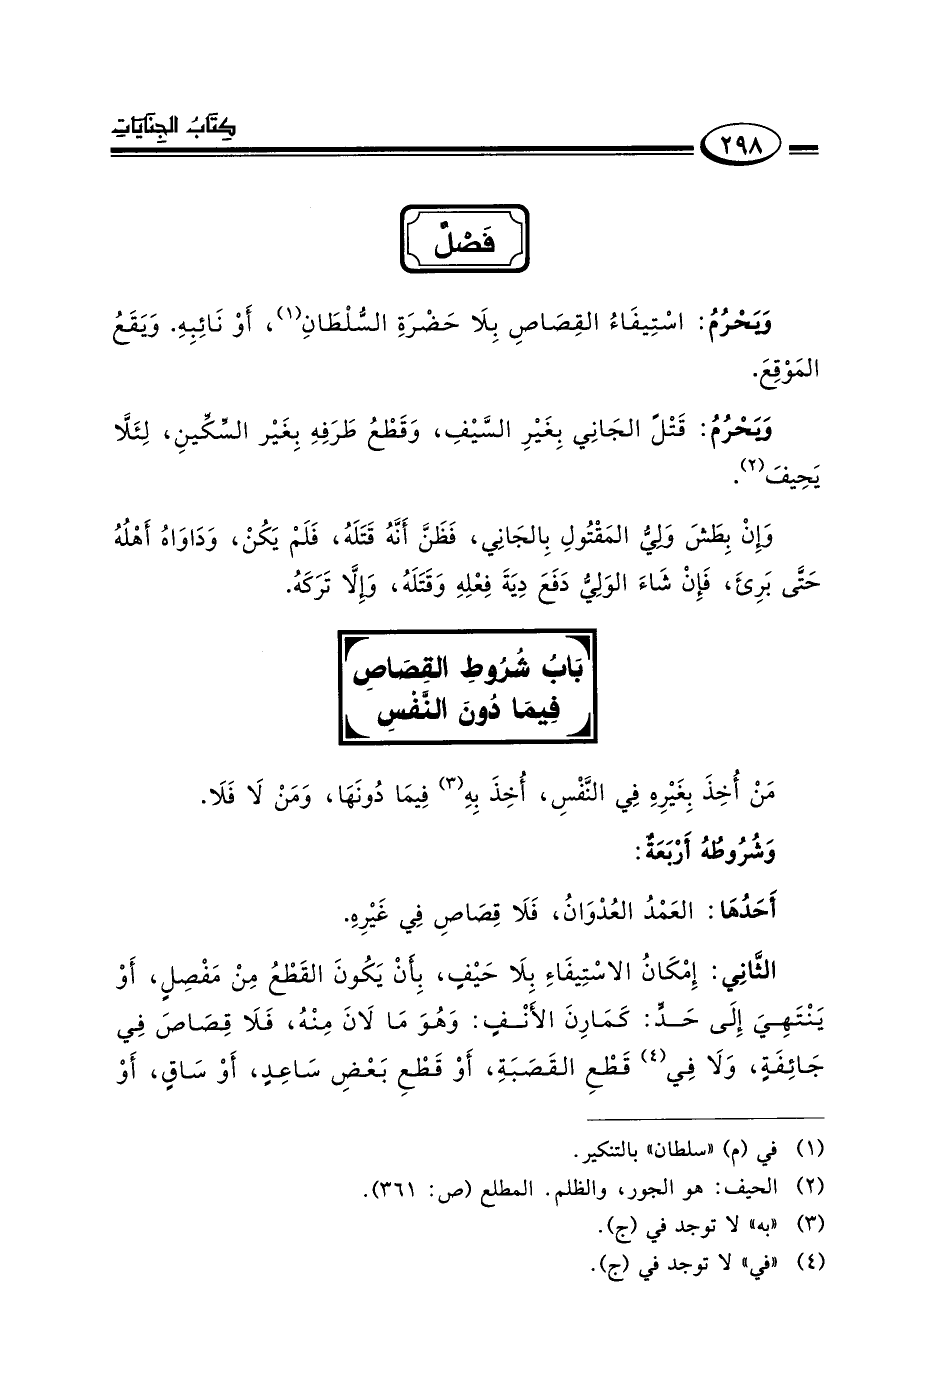 كِتَابُ الجِنَايَاتِ
٢٩٨
فَصْلٌ
وَيَحْرُمُ: اسْتِيفَاءُ القِصَاصِ بِلَا حَضْرَةِ السُّلْطَانِ(١)، أَوْ نَائِبِهِ. وَيَقَعُ
المَوْقِعَ.
وَيَحْرُمُ: قَتْلُ الجَانِي بِغَيْرِ السَّيْفِ، وَقَطْعُ طَرَفِهِ بِغَيْرِ السِّكِّينِ، لِئَلَّا
يَحِيفَ(٢).
وَإِنْ بَطَشَ وَلِيُّ المَقْتُولِ بِالجَانِي، فَظَنَّ أَنَّهُ قَتَلَهُ، فَلَمْ يَكُنْ، وَدَاوَاهُ أَهْلُهُ
حَتَّى بَرِئَ، فَإِنْ شَاءَ الوَلِيُّ دَفَعَ دِيَةَ فِعْلِهِ وَقَتَلَهُ، وَإِلَّا تَرَكَهُ.
بَابُ شُرُوطِ القِصَاصِ
فِيمَا دُونَ النَّفْسِ
مَنْ أُخِذَ بِغَيْرِهِ فِي النَّفْسِ، أُخِذَ بِهِ(٣) فِيمَا دُونَهَا، وَمَنْ لَا فَلَا.
وَشُرُوطُهُ أَرْبَعَةٌ:
أَحَدُهَا: العَمْدُ العُدْوَانُ، فَلَا قِصَاصِ فِي غَيْرِهِ.
الثَّانِي: إِمْكَانُ الاسْتِيفَاءِ بِلَا حَيْفٍ، بِأَنْ يَكُونَ القَطْعُ مِنْ مَفْصِلٍ، أَوْ
يَنْتَهِيَ إِلَى حَدٍّ: كَمَارِنَ الأَنْفِ: وَهُوَ مَا لَانَ مِنْهُ، فَلَا قِصَاصَ فِي
جَائِفَةٍ، وَلَا فِي(٤) قَطْعِ القَصَبَةِ، أَوْ قَطْعِ بَعْضِ سَاعِدٍ، أَوْ سَاقٍ، أَوْ
(١) في (م) «سلطان» بالتنكير.
(٢) الحيف: هو الجور، والظلم. المطلع (ص: ٣٦١).
(٣) «به» لا توجد في (ج).
(٤) «في» لا توجد في (ج).